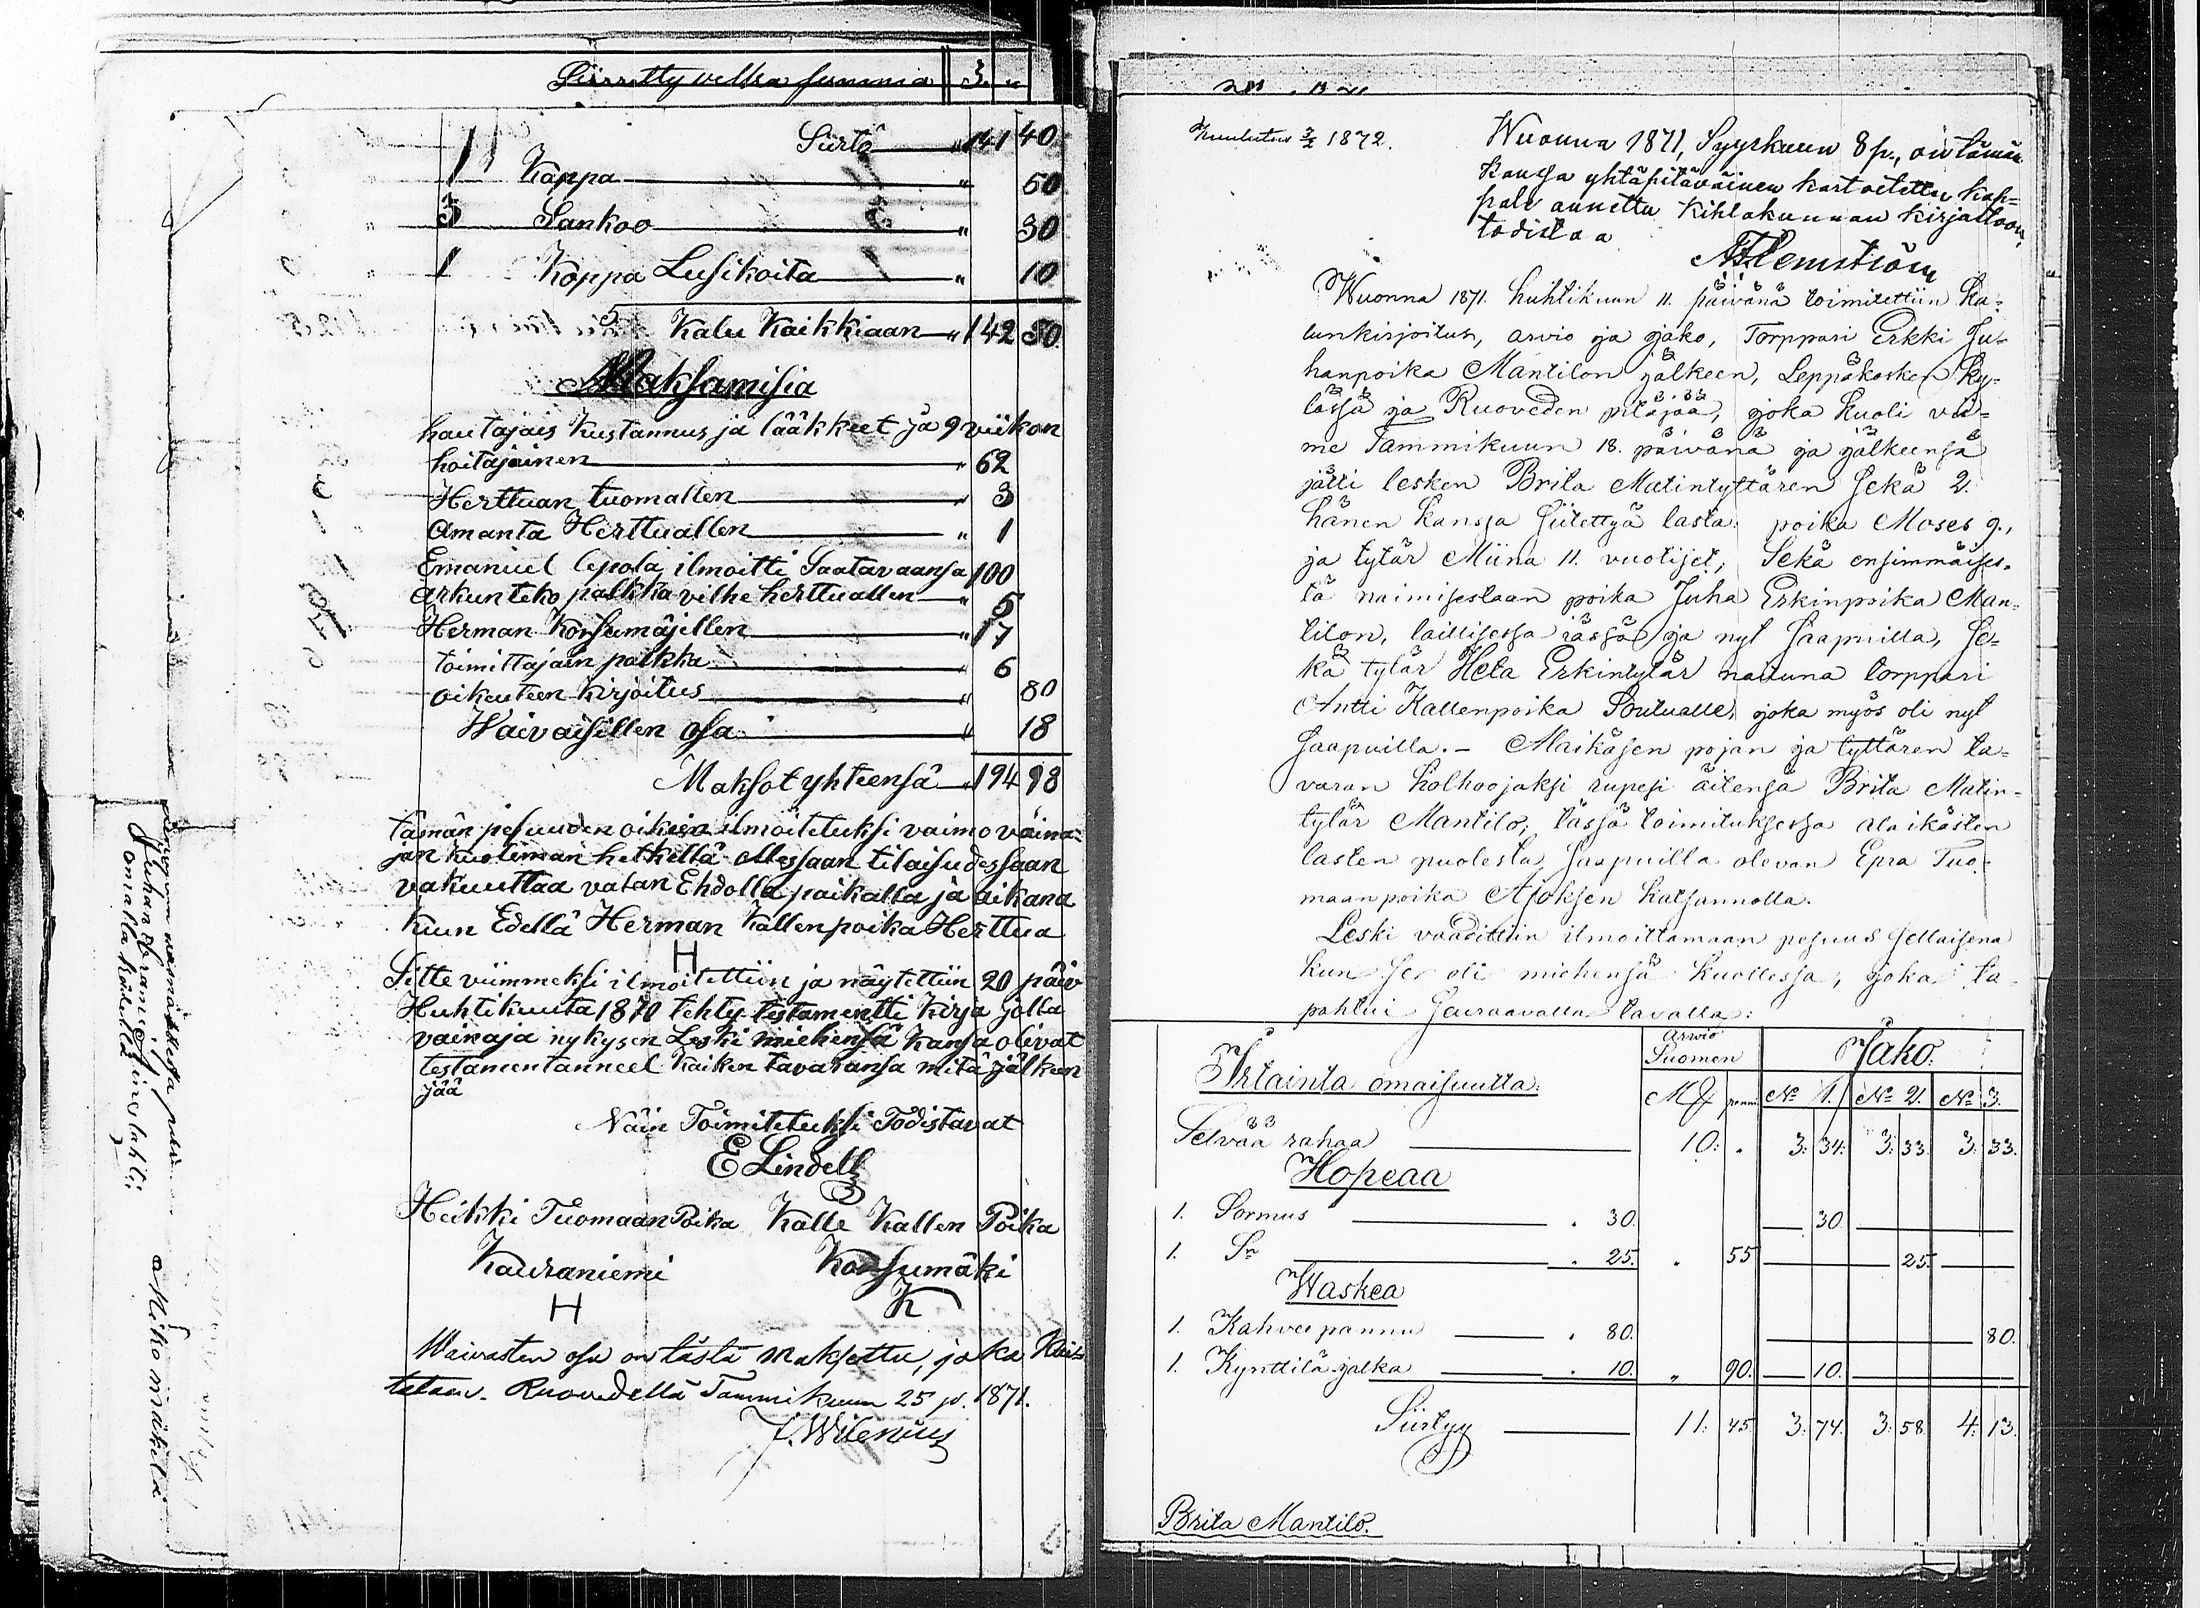 Siirretty velka summa 3 "
Siirtö " 141 40
1 Kappa " 50
3 Sankoo " 30
1 Koppa Lusikoita " 10
Kalu Kaikkiaan " 142 80
Maksamisia
hautajais kustannus ja lääkkeet ja 9 viikon
hoitajainen " 62
Herttuan tuomallen " 3
Amanta Herttuallen " 1
Emaniel lepola ilmoitti Saatavaansa 100
arkunteko palkka vilhe herttuallen " 5
Herman Konsumäjellen " 17
toimittajain palkka " 6
oikeuteen kirjoitus " 80
Waivaisillen osa " 18
Maksot yhteensä " 194 98
tämän pesuuden oikein ilmoitetuksi vaimo vaina=
jan kuoliman hetkellä ollessaan tilaisudessaan
vakuuttaa valan Ehdolla paikalla ja aikana
kuun Edellä Herman Kallenpoika Herttua
H
Sitte viimmeksi ilmoitettiin ja näytettiin 20 päiv
Huhtikuuta 1870 tehty testamentti kirja jolla
vainaja nykysen Leski miehensä kansa olivat
testamentanneet kaiken tavaransa mitä jälkeen
jää
Näin Toimitetuksi Todistavat
E Lindell
Heikki Tuomaan Poika Kalle Kallen Poika
Kauraniemi Konsumäki
H K
Waivasten osa on tästä maksettu, joka kuit=
tataan. Ruovedellä Tammikuun 25 p. 1871.
J. Wilenius
omalla kädellä
a Mikomäkelä
Kuulutus 3/2 1872.
Wuonna 1871, Syyskuun 8 p., on tämän
kanssa yhtäpitäväinen kartoitettu kap=
pale annettu Kihlakunnan kirjastoon,
todistaa
Wuonna 1871. huhtikuun 11. päivänä toimitettiin ka=
lunkirjoitus, arvio ja jako, Torppari Erkki Ju=
hanpoika Mantilon jälkeen, Leppäkosken ky=
lässä ja Ruoveden pitäjää, joka kuoli vii=
me Tammikuun 18. päivänä ja jälkeensä
jätti lesken Brita Matintyttären sekä 2.
hänen kanssa siitettyä lasta: poika Moses 9.,
ja tytär Miina 11. vuotiset; Sekä ensimmäises=
tä naimisestaan poika Juha Erkinpoika Man=
tilon, laillisessa iässä ja nyt saapuilla, se=
kä tytär Heta Erkintytär naituna torppari
Antti Kallenpoika Soutualle, joka myös oli nyt
saapuilla. – Alaikäsen pojan ja tyttären ta=
varan holhoojaksi rupesi äitensä Brita Matin=
tytär Mantilo, tässä toimituksessa ala ikästen
lasten puolesta saapuilla olevan Epra Tuo=
maanpoika Ajoksen katsannolla.
Leski vaadittiin ilmoittamaan pesuus sellaisena
kun se oli miehensä kuollessa, joka ta=
pahtui seuraavalla tavalla:
Irtainta omaisuutta: Arwio Suomen Jako.
Mk penni No 1. No 2. No 3.
Selvää rahaa 10: " 3: 34: 3: 33. 3: 33.
Hopeaa
1. Sormus " 30. 30
1. Sn " 25. " 55 25.
Waskea
1. Kahvee pannu " 80. 80.
1. Kynttilä jalka " 10. " 90. 10.
Siirtyy 11: 45 3: 74. 3: 58. 4: 13.
Brita Mantilo.